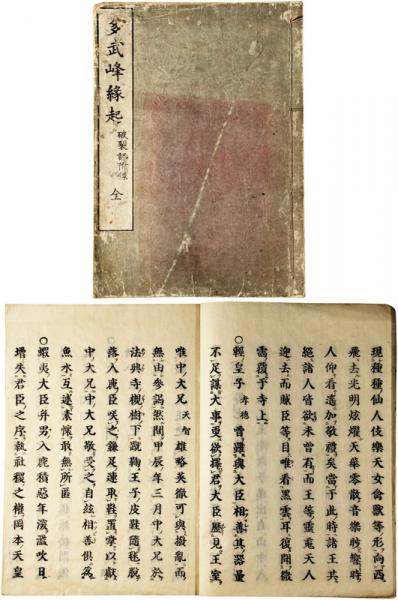 多武峰緣起
破裂記附録
全
現種種仙人伎樂天女禽獸等形向西
飛去光明炫耀天華零散音樂聆響時
人仰看遙加敬禮矣當于此時諸王共
絕諸人皆歎未曾有而王等靈天人
迎去而賦臣等目唯看黑雲耳復開微
雲覆于寺上
○輕皇子 孝德 曾雖與大臣相善其器量
不足謀大事更欲擇君大臣歷見王室
唯中大兄 天智 雄略英徹可與撥亂而
無由參謁然間甲辰年三月中大兄於
法興寺槻樹下蹴鞠王子皮鞋隨毬脫
落入鹿臣咲之鎌足連取鞋置掌以獻
中大兄中大兄敬受之自玆相善俱為
魚水互述素懷敢無所匿
○蝦夷大臣幷男入鹿積惡年深濫吹日
增失君臣之序執社稷之權岡本天皇